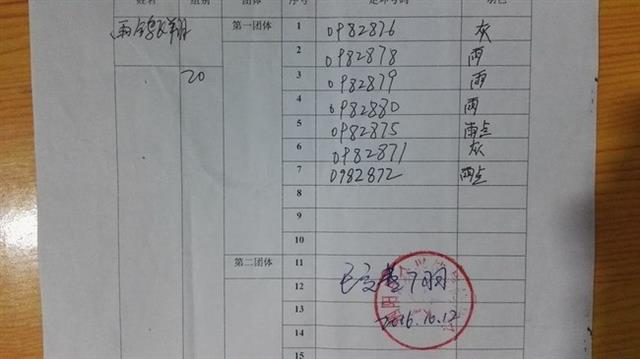 姓名 组别 团体 序号 足环号码 羽色
第一团体 1 0982876 灰
2 0982878 雨
20 3 0982879 雨
4 0982880 雨
5 0982875 雨点
6 0982871 灰
7 0982872 雨点
8
9
10
第二团体 11
12
13
2016.10.12
14
15